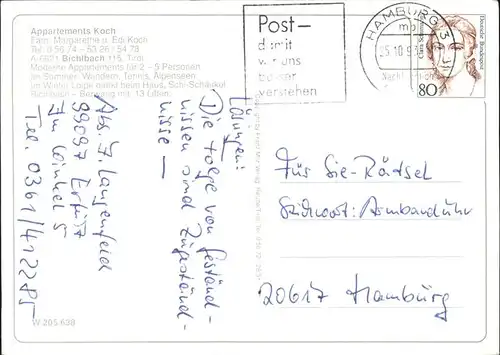 Appartements Koch
Fam. Margarethe u. Edi Koch
Tel. 0 56 74 - 53 26 / 54 78
A-6621 Bichlbach 115, Tirol
Moderne Appartements für 2 - 5 Personen
Im Sommer: Wandern, Tennis, Alpenseen
Im Winter Loipe direkt beim Haus, Schi-Schaukel
Bichlbach - Berwang mit 13 Liften
Post-
damit
wir uns
besser
verstehen
HAMBURG
25.10.93
Deutsche Bundespost
80
Lösungen:
Die Folge von Geständ-
nissen sind Zugeständ-
nisse —
Abs. J. Langenfeld
99097 Erfurt
Im Winkel 5
Tel. 0361/412285
Für Sie-Rätsel
Stichwort: Armbanduhr
20617 Hamburg
W 205.638